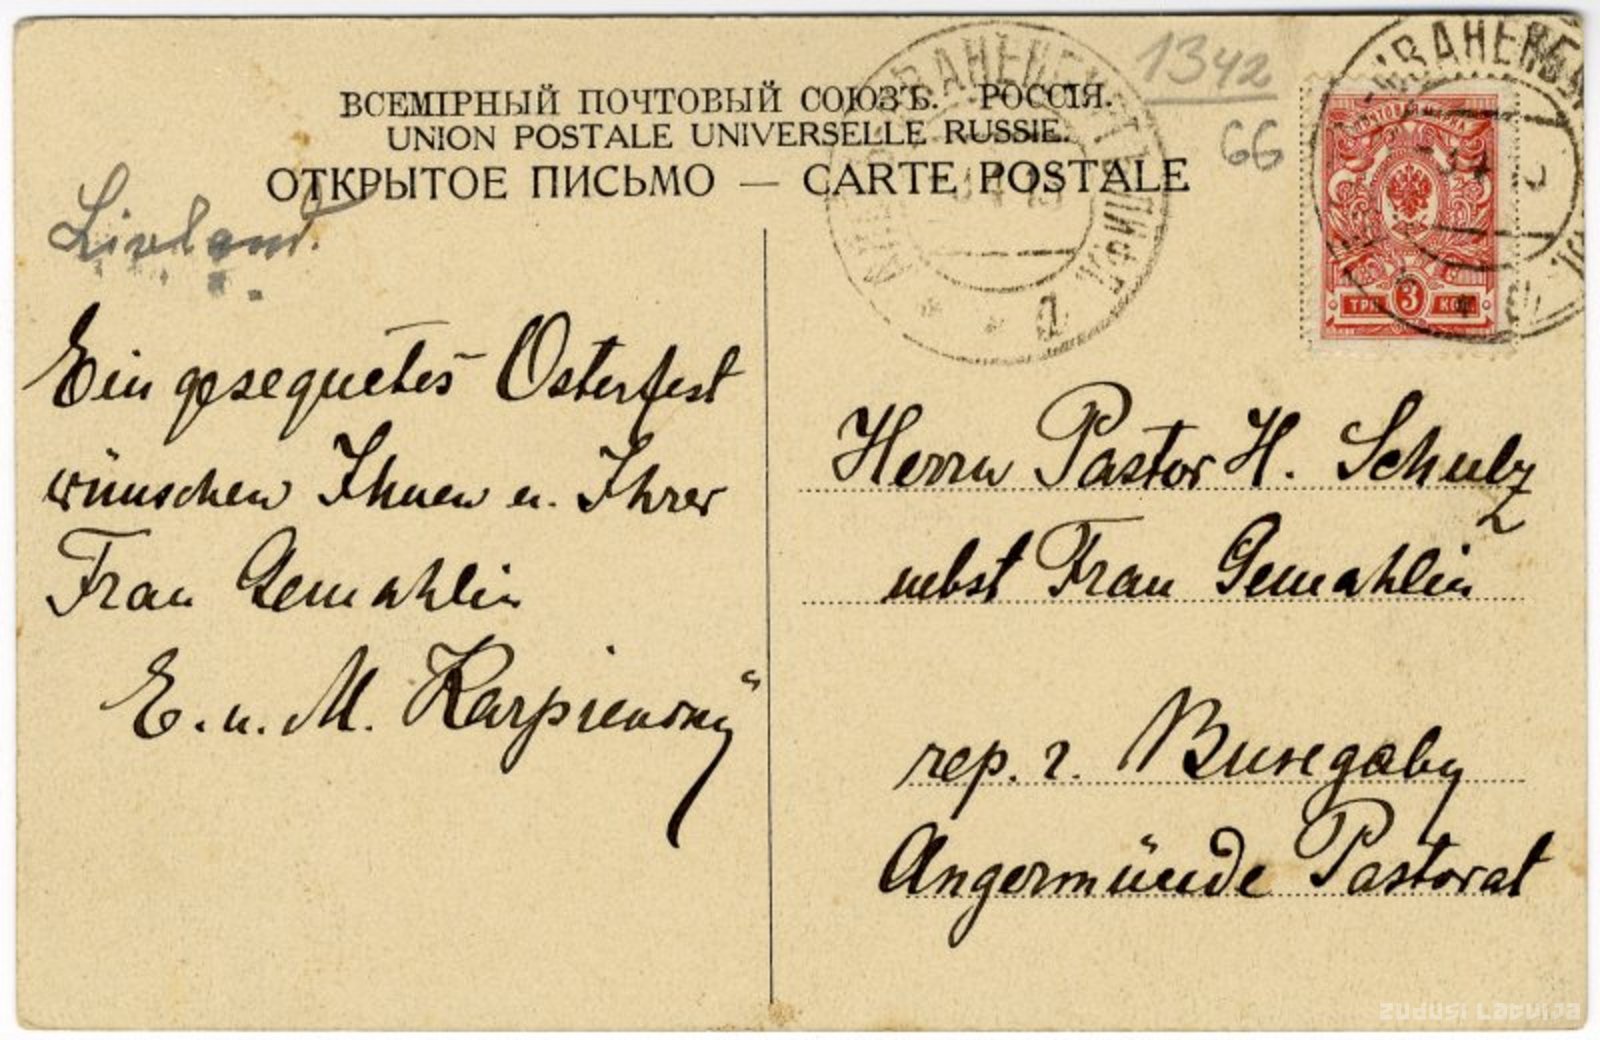 1342
66
ВСЕМІРНЫЙ ПОЧТОВЫЙ СОЮЗЪ. РОССІЯ.
UNION POSTALE UNIVERSELLE RUSSIE.
ОТКРЫТОЕ ПИСЬМО — CARTE POSTALE
Livland.
Ein gesegnetes Osterfest
wünschen Ihnen u. Ihrer
Frau Gemahlin
E. u. M.
ТРИ 3 КОП
Herrn Pastor H. Schulz
nebst Frau Gemahlin
rep. г.
Angermünde Pastorat
ZUDUSI LATVIJA